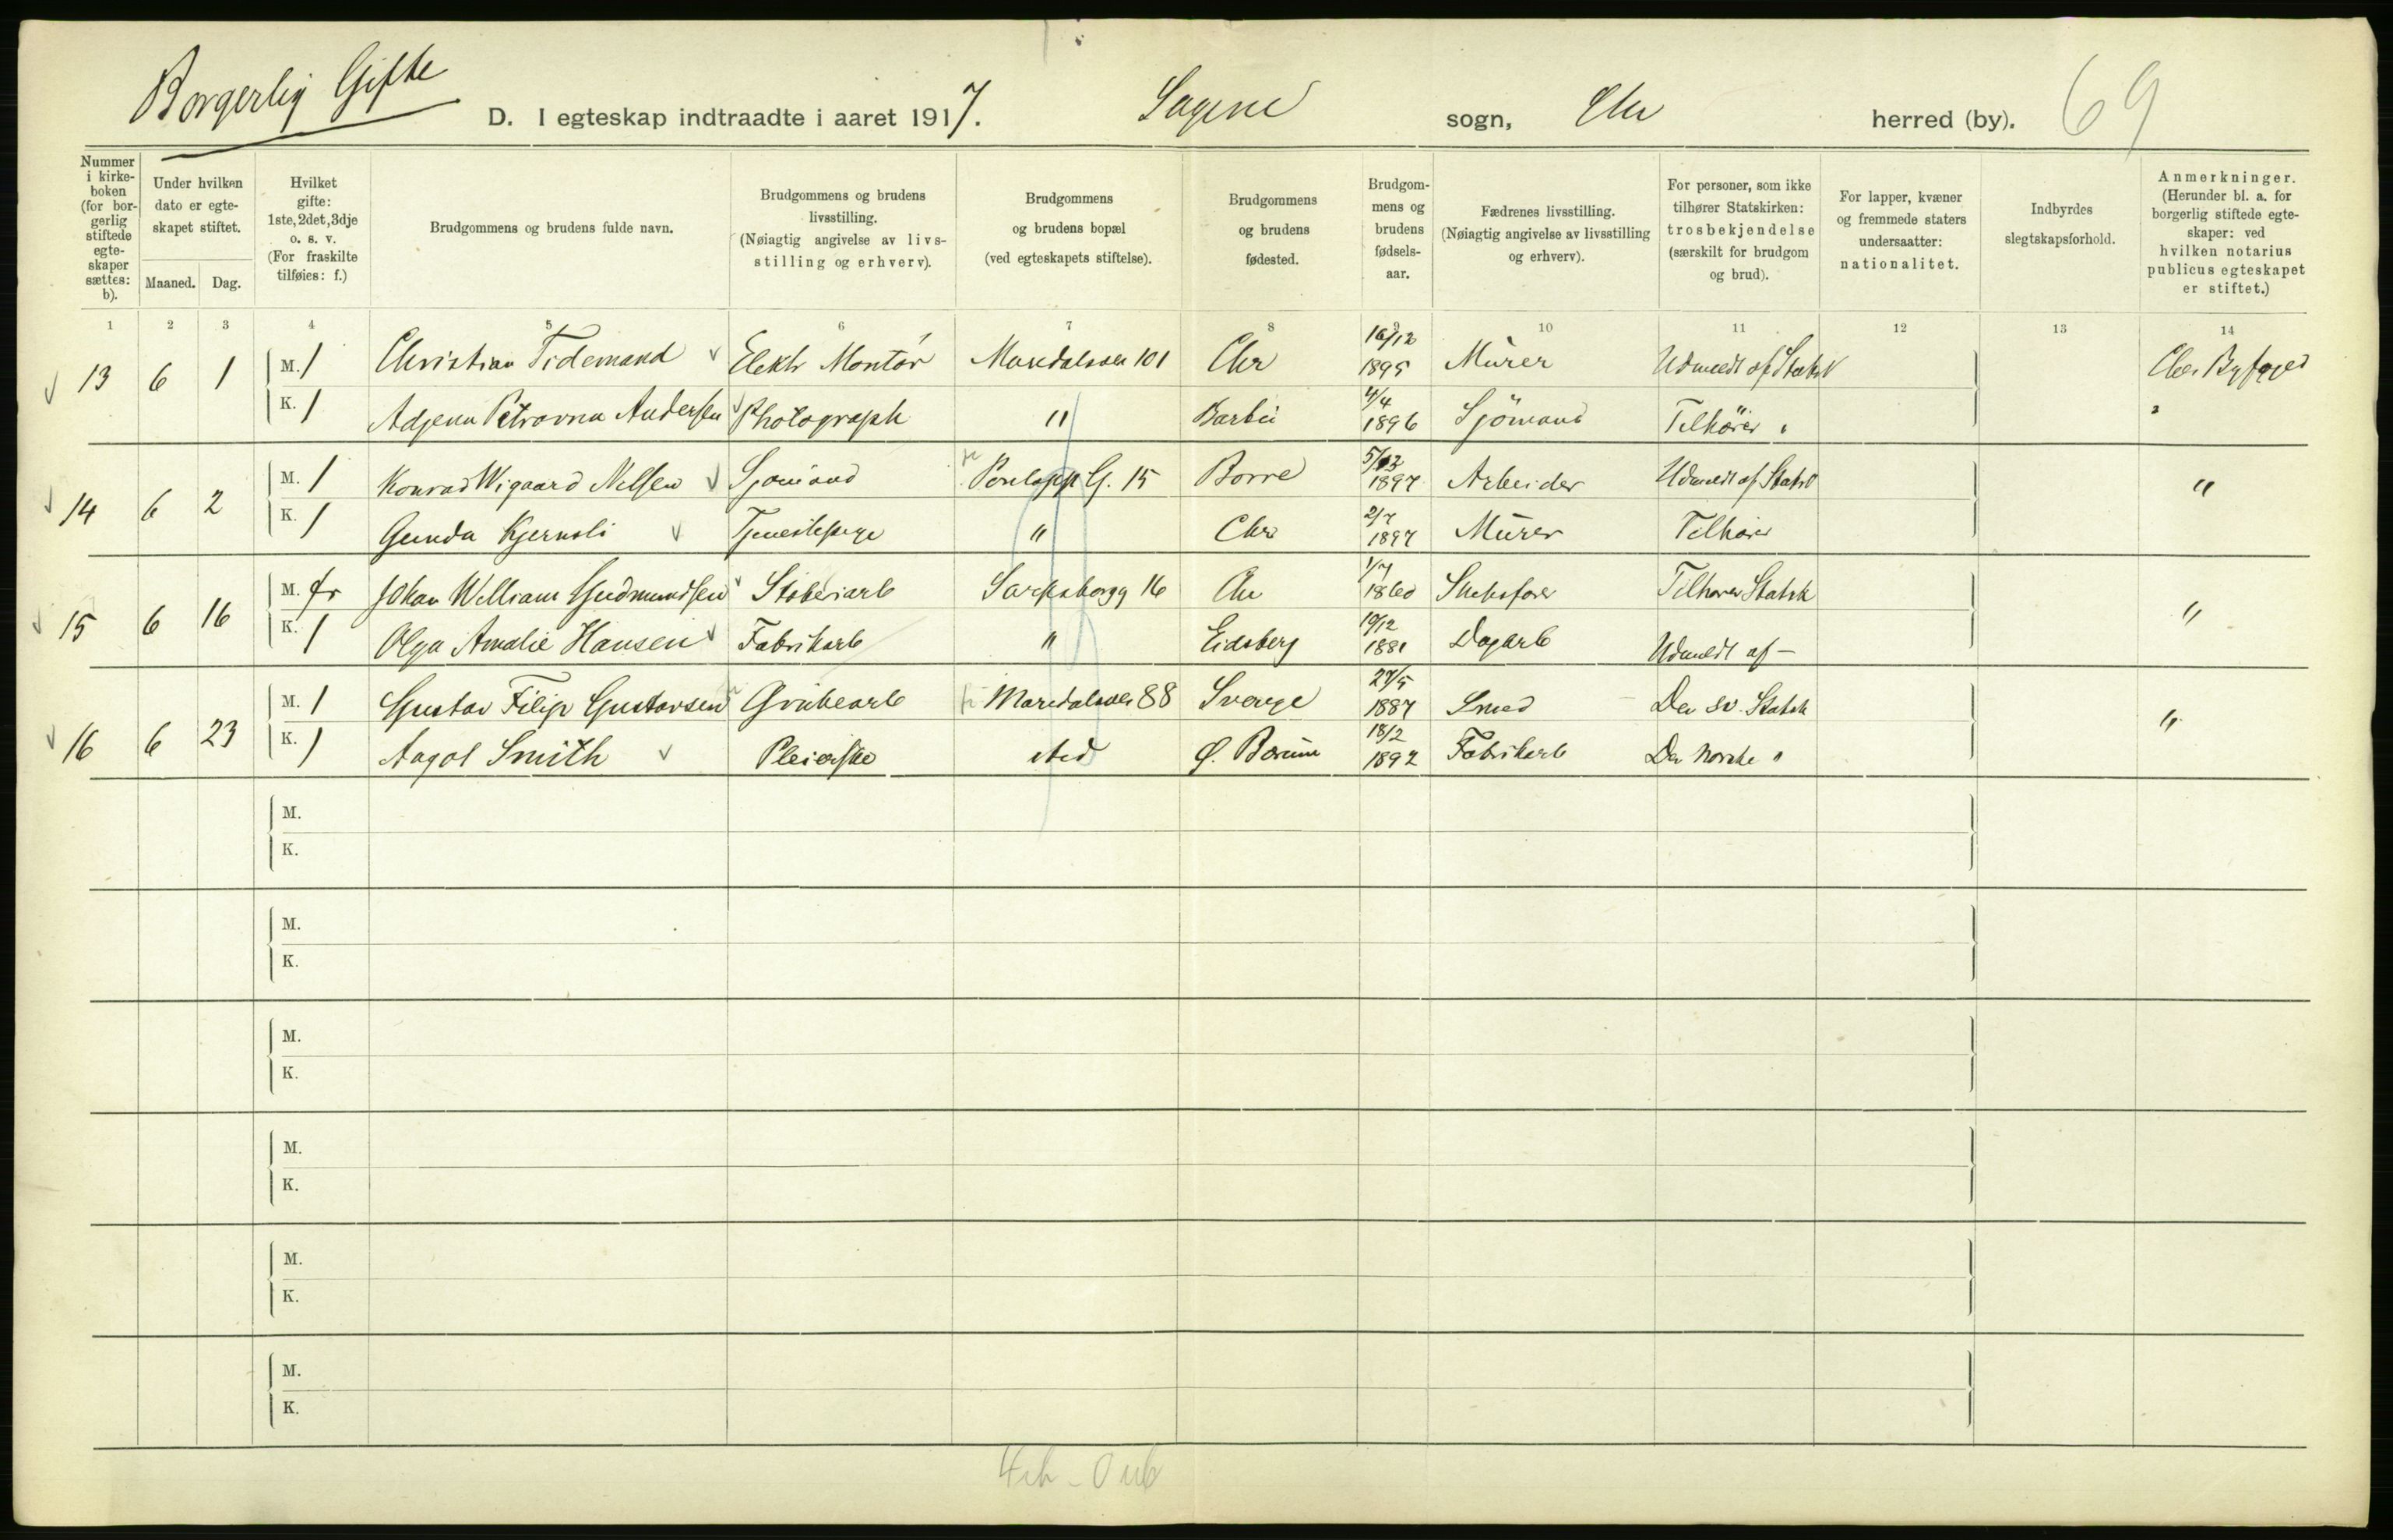 Borgerlig Gifte
D. I egteskap indtraadte i aaret 1917. Sagene sogn, Chr herred (by). 69
Nummer i kirkeboken (for borgerlig stiftede egteskaper sættes: b).
Under hvilken dato er egteskapet stiftet.
Maaned. Dag.
Hvilket gifte: 1ste, 2det, 3dje o. s. v. (For fraskilte tilføies: f.)
Brudgommens og brudens fulde navn.
Brudgommens og brudens livsstilling. (Nøiagtig angivelse av livsstilling og erhverv).
Brudgommens og brudens bopæl (ved egteskapets stiftelse).
Brudgommens og brudens fødested.
Brudgommens og brudens fødselsaar.
Fædrenes livsstilling. (Nøiagtig angivelse av livsstilling og erhverv).
For personer, som ikke tilhører Statskirken: trosbekjendelse (særskilt for brudgom og brud).
For lapper, kvæner og fremmede staters undersaatter: nationalitet.
Indbyrdes slegtskapsforhold.
Anmerkninger. (Herunder bl. a. for borgerlig stiftede egteskaper: ved hvilken notarius publicus egteskapet er stiftet.)
1 2 3 4 5 6 7 8 9 10 11 12 13 14
13 6 1 M. 1 Christian Tidemand Elektr Montör Maridalsvei 101 Chr 16/12 1895 Mürer Udmeldt af Statsk Chr. Byfoged
K. 1 Petrovna Andersen Photograph " Barbu 4/4 1896 Sjömand Tilhörer "
14 6 2 M. 1 Konrad Wigaard Nilsen Sjömand G. 15 Borre 1897 Arbeider Udmeldt af Statsk "
K. 1 Gunda Kjernsli Tjenestepige " Chr 2/7 1897 Mürer Tilhører
15 6 16 M. fr Johan William Gudmundsen Støberiarb Sarpsborgg 16 Chr 1/7 1860 Tilhører Statsk "
K. 1 Olga Amalie Hansen Fabrikarb " Eidsberg 19/12 1881 Dagarb Udmeldt af —
16 6 23 M. 1 Gustav Filip Gustavsen Grubearb Maridalsvei 88 Sverge 27/5 1887 Smed Den sv. Statsk "
K. 1 Aagot Smith Pleierske sted Ø. Bærum 18/2 1892 Fabrikarb Den norske "
M.
K.
M.
K.
M.
K.
M.
K.
M.
K.
M.
K.